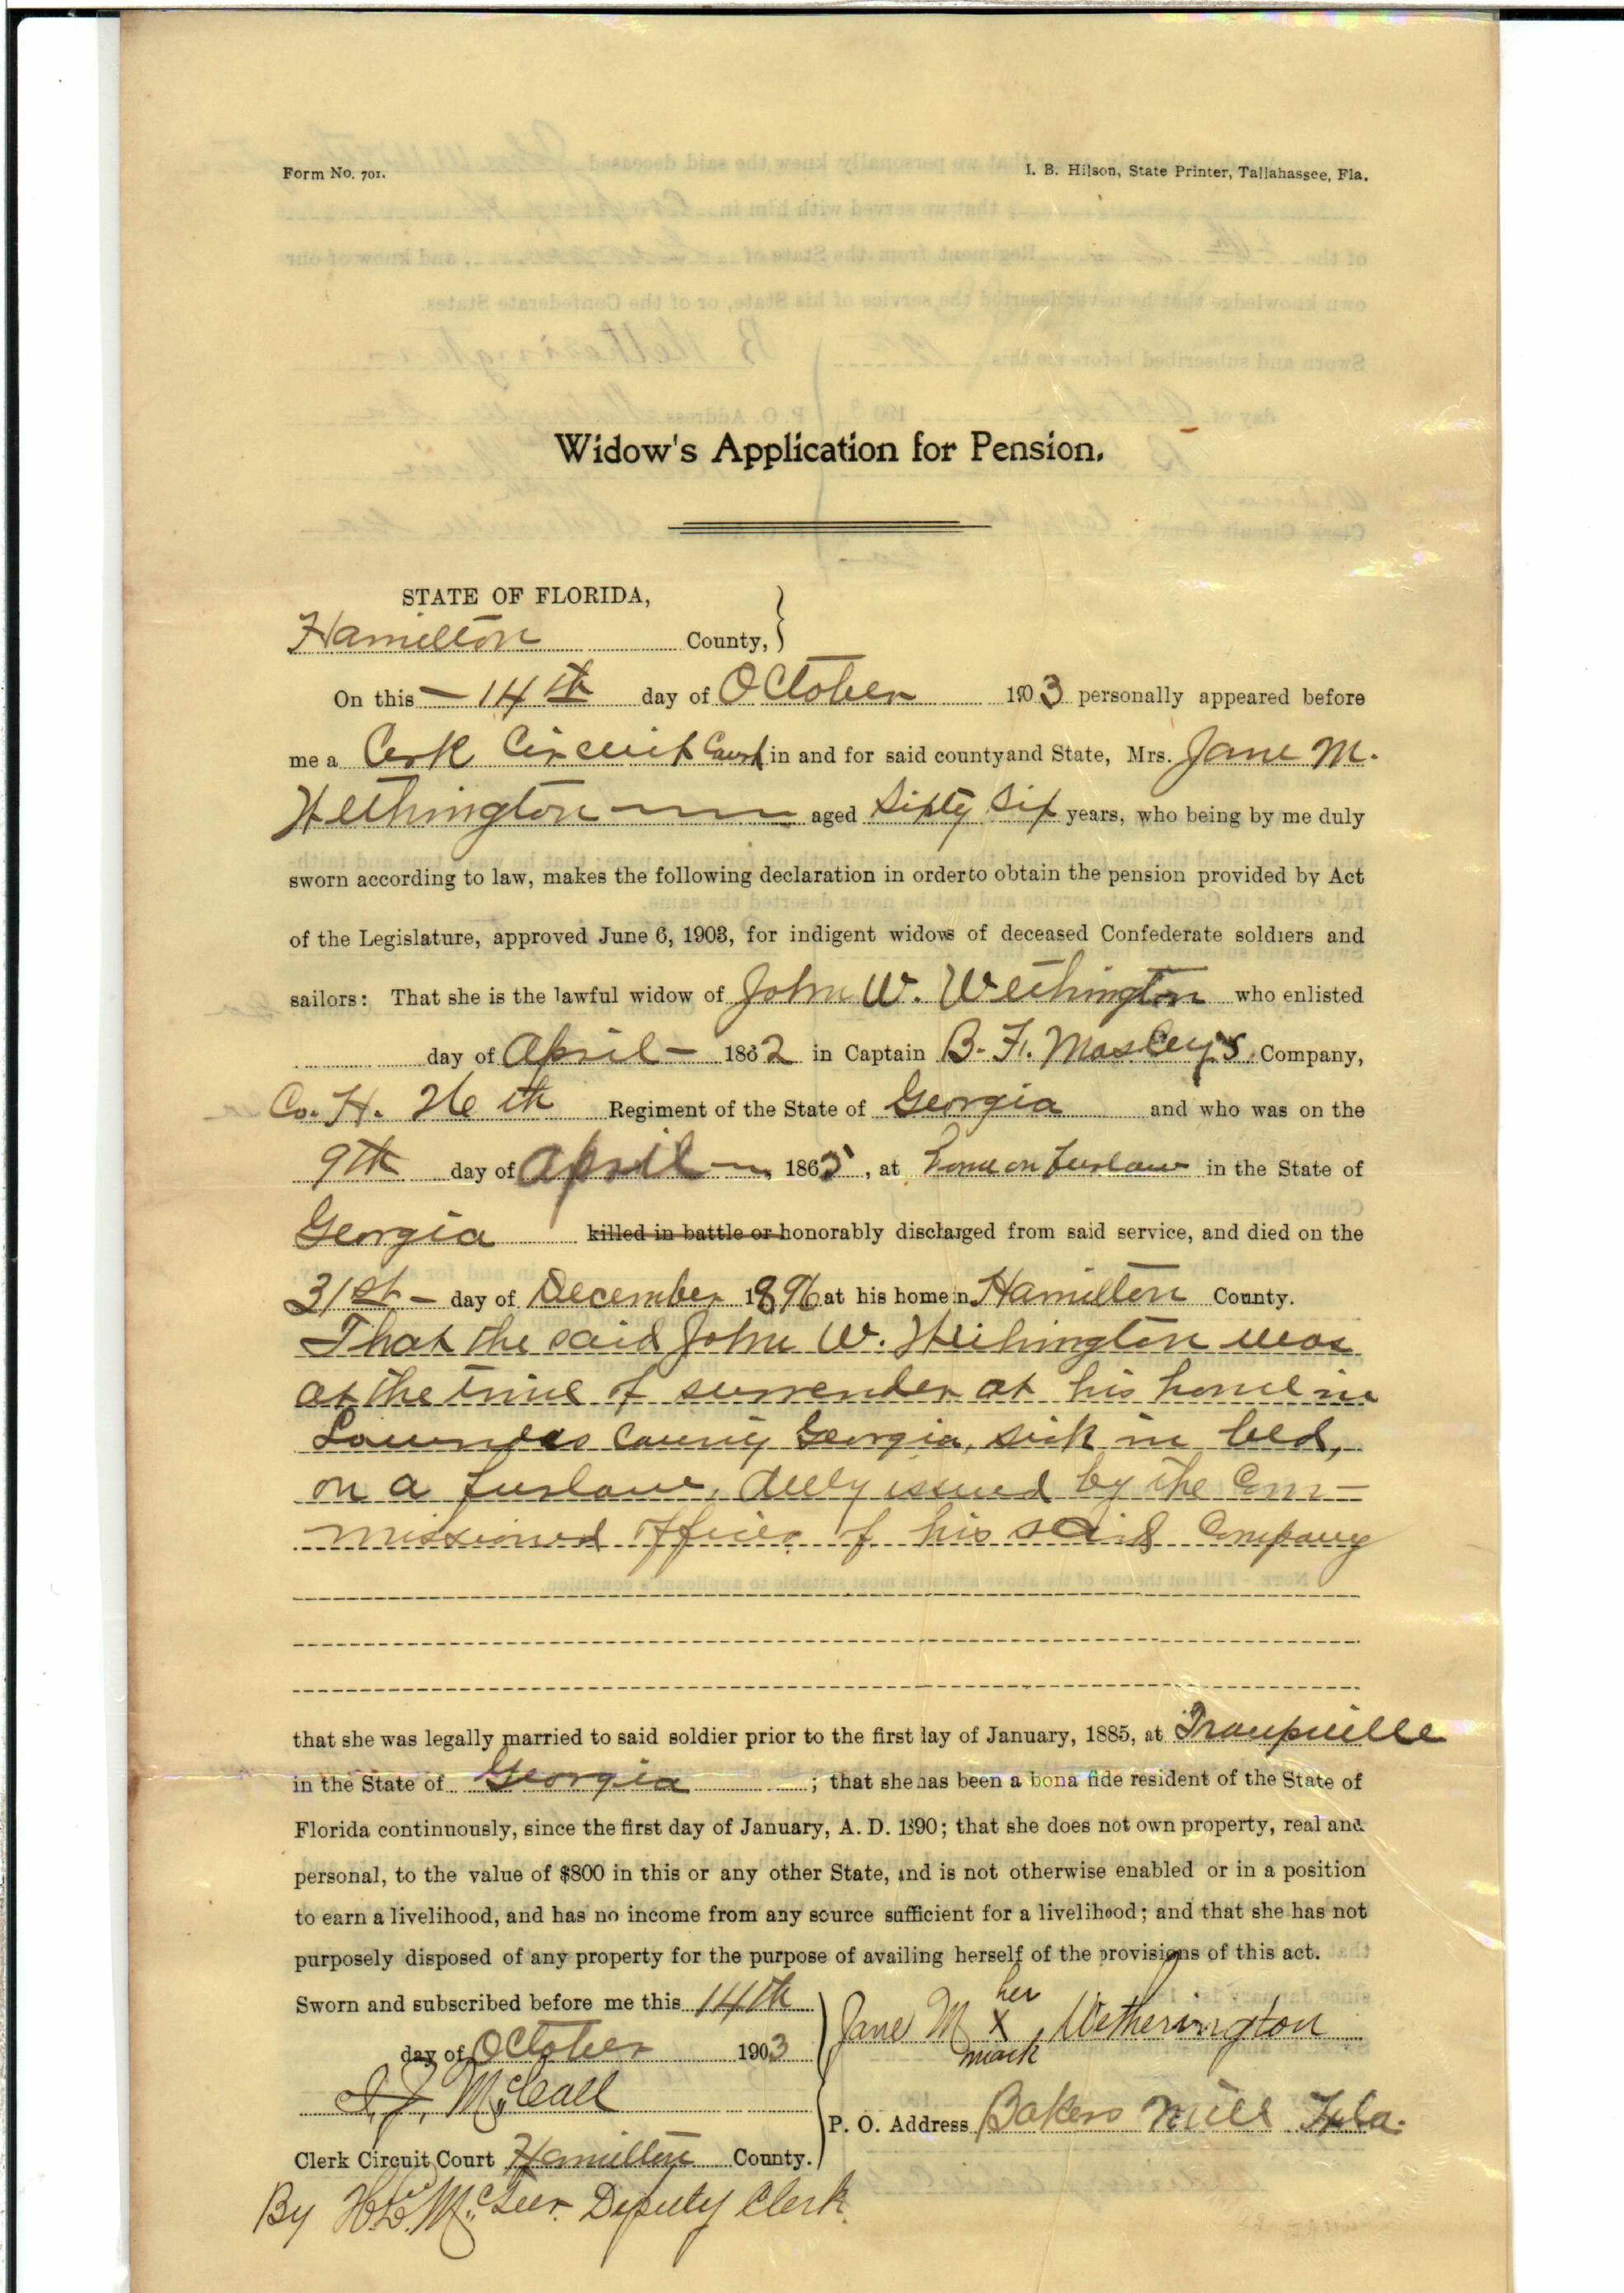 Form No. 701.
I. B. Hilson, State Printer, Tallahassee, Fla.
Widow's Application for Pension.
STATE OF FLORIDA,
Hamilton County,
On this 14th day of October 1903 personally appeared before
me a Cerk Circuit Court in and for said county and State, Mrs. Jane M.
Wethington aged Sixty Six years, who being by me duly
sworn according to law, makes the following declaration in order to obtain the pension provided by Act
of the Legislature, approved June 6, 1903, for indigent widows of deceased Confederate soldiers and
sailors: That she is the lawful widow of John W. Wethington who enlisted
day of April 1862 in Captain B. F. Mosley's Company,
Co. H. 26th Regiment of the State of Georgia and who was on the
9th day of April 1865, at home on furlow in the State of
Georgia killed in battle or honorably discharged from said service, and died on the
31st day of December 1896 at his home in Hamilton County.
That the said John W. Wethington was
at the time of surrender at his home in
Lowndes County Georgia, sick in bed,
on a furlow, duly issued by the Com-
missioned officer of his said Company
that she was legally married to said soldier prior to the first day of January, 1885, at
in the State of Georgia; that she has been a bona fide resident of the State of
Florida continuously, since the first day of January, A. D. 1890; that she does not own property, real and
personal, to the value of $800 in this or any other State, and is not otherwise enabled or in a position
to earn a livelihood, and has no income from any source sufficient for a livelihood; and that she has not
purposely disposed of any property for the purpose of availing herself of the provisions of this act.
Sworn and subscribed before me this 14th
day of October 1903
McCall
Clerk Circuit Court Hamilton County.
By Deputy Clerk.
her
Jane M X Wetherington
mark
P. O. Address Bakers Mill Fla.